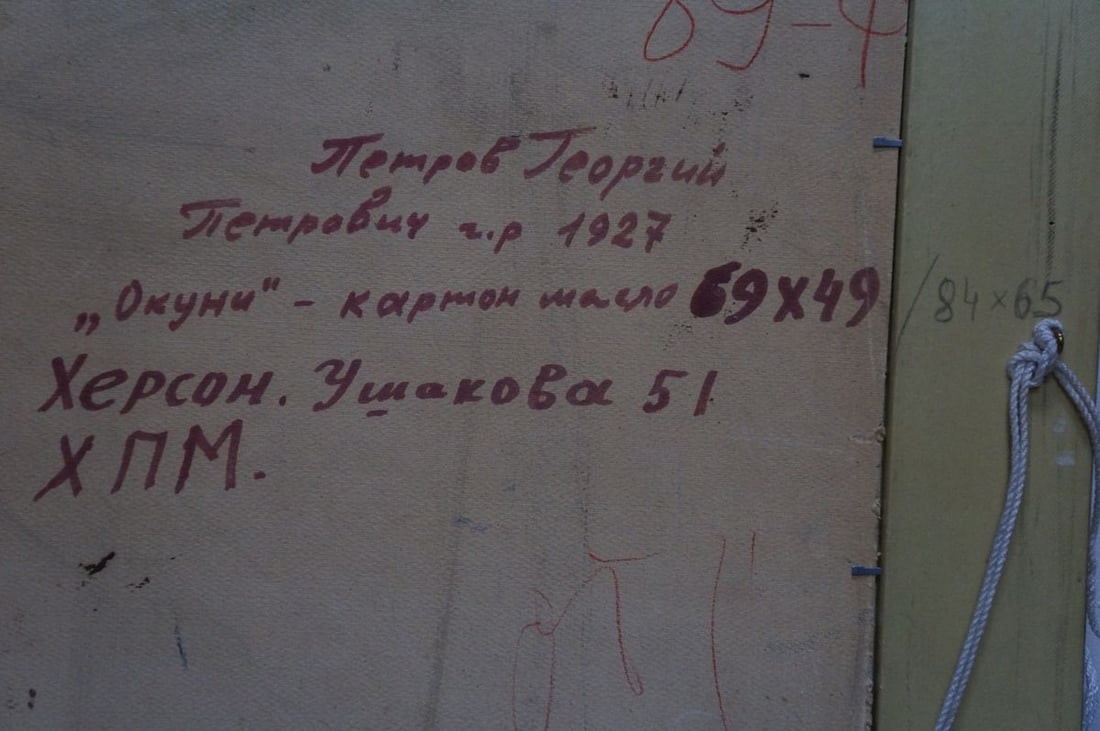 Петров Георгий
Петрович г.р 1927
„Окуни" - картон масло 69X49 /84×65
Херсон. Ушакова 51
ХПМ.